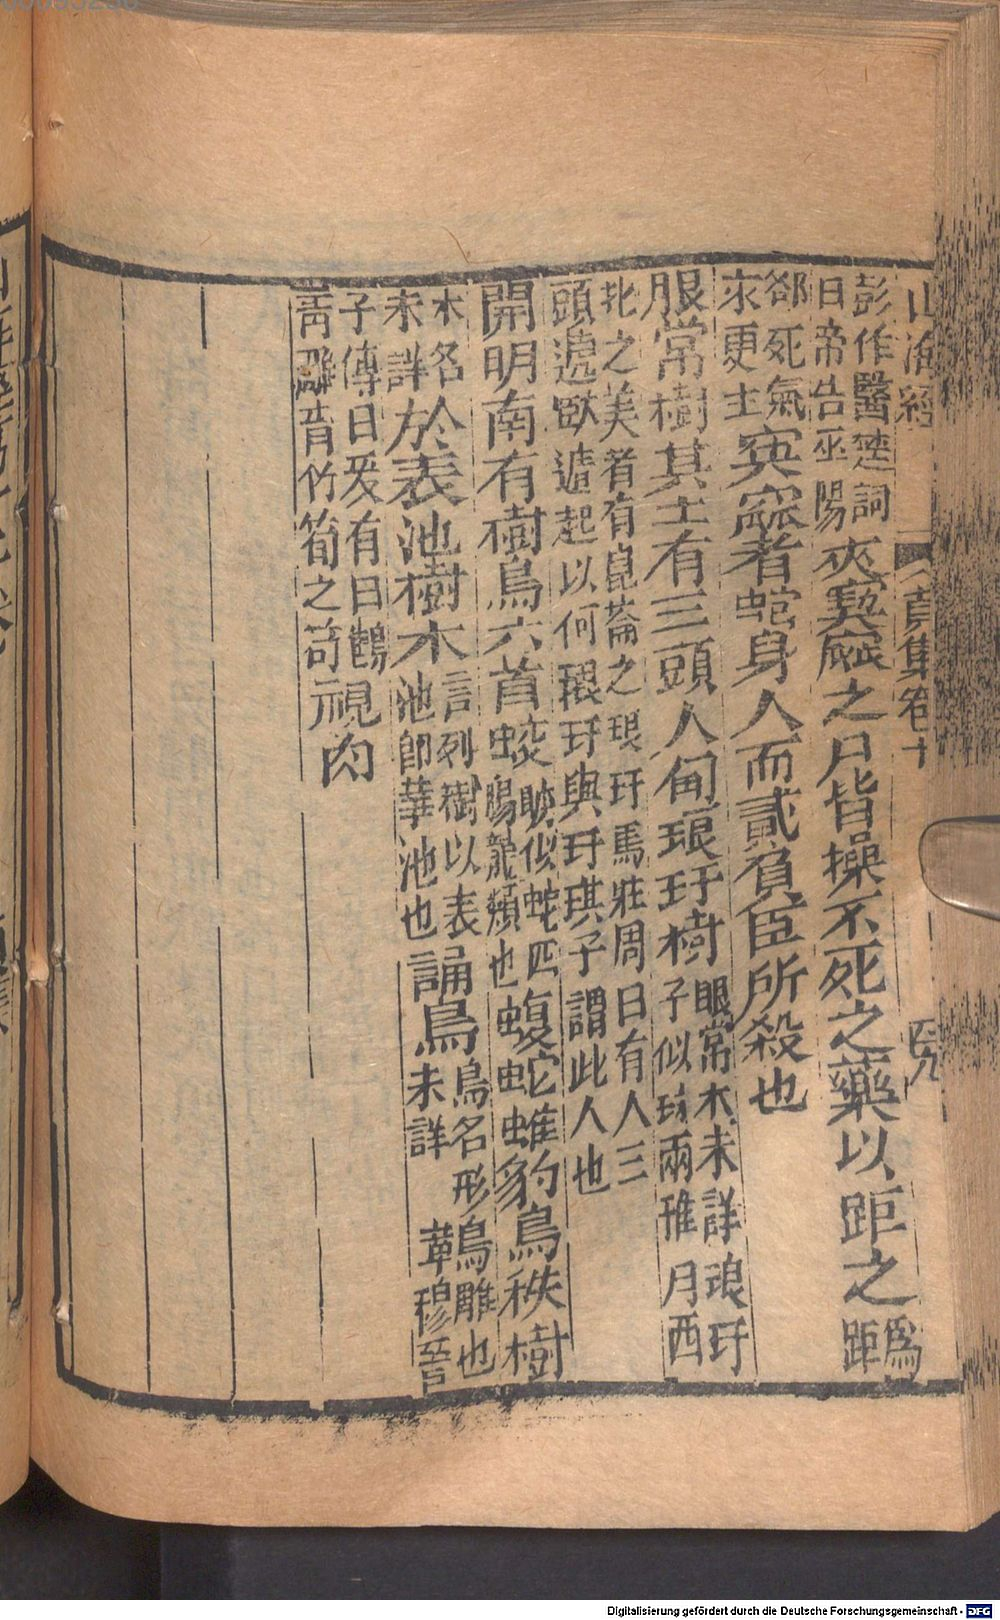 山海經 貞集卷十
彭作醫楚詞
曰帝告巫陽
夾窫窳之尸皆操不死之藥以距之
爲
距
郤死氣
求更生
窫窳者蛇身人而貳負臣所殺也
服常樹其土有三頭人伺琅玕樹
服常木未詳琅玕
子似珠爾雅曰西
北之美者有崑崙之琅玕焉莊周曰有人三
頭遞臥遞起以伺琅玕與玕琪子謂此人也
開明南有樹鳥六首蛟
蛟似蛇四
腳龍類也
蝮蛇蜼豹鳥秩樹
木名
未詳
於表池樹木
言列樹以表
池即華池也
誦鳥
鳥名形
未詳
雕也
穆
子傳曰爰有白
靑雕音竹筍之筍
視肉